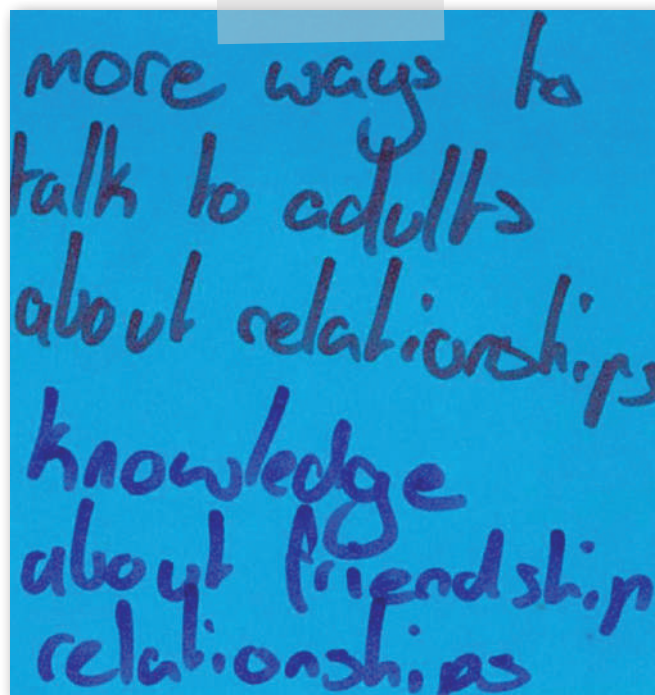 more ways to
talk to adults
about relationships
knowledge
about friendship
relationships